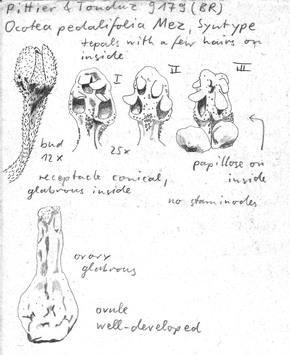 Pittier & Tonduz 9179 (BR)
Ocotea pedalifolia Mez, Syntype
tepals with a few hairs on
inside
I II III
bud
12x
25x
papillose on
inside
receptacle conical,
glabrous inside
no staminodes
ovary
glabrous
ovule
well-developed